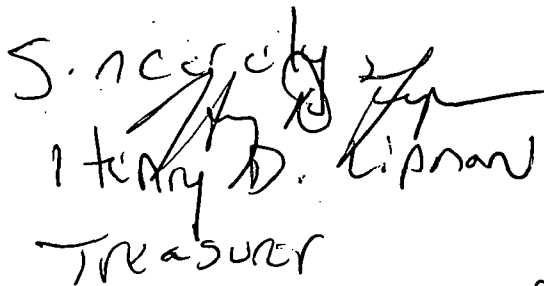 Sincerely,
Henry D. Lipman
Treasurer